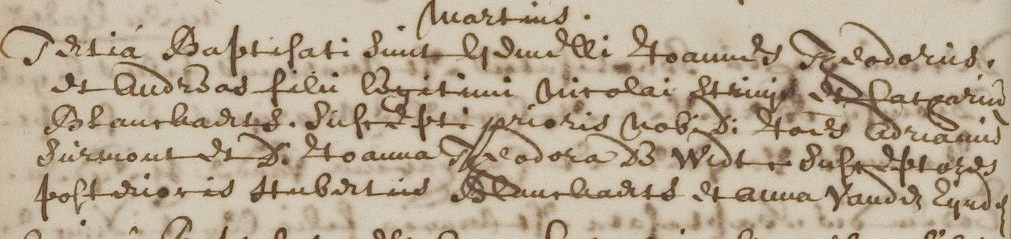 Martius.
Tertiá Baptisati sunt Gemelli Joannes Theodorus.
et Andreas filii legitimi Nicolai Strinx et Catharinæ
Blanckaerts. Suscepti prioris Nob. D. Joës Adrianus
Surmont et D. Joanna Theodora de Widt Susceptores
posterioris Hubertus Blanckaerts et Anna Vander